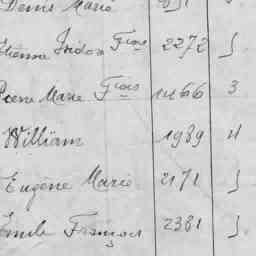 Denis Marie
Etienne Isidore Fçois 2272 5
Pierre Marie Fçois 1466 3
William 1989 4
Eugène Marie 2171 5
Emile François 2381 5